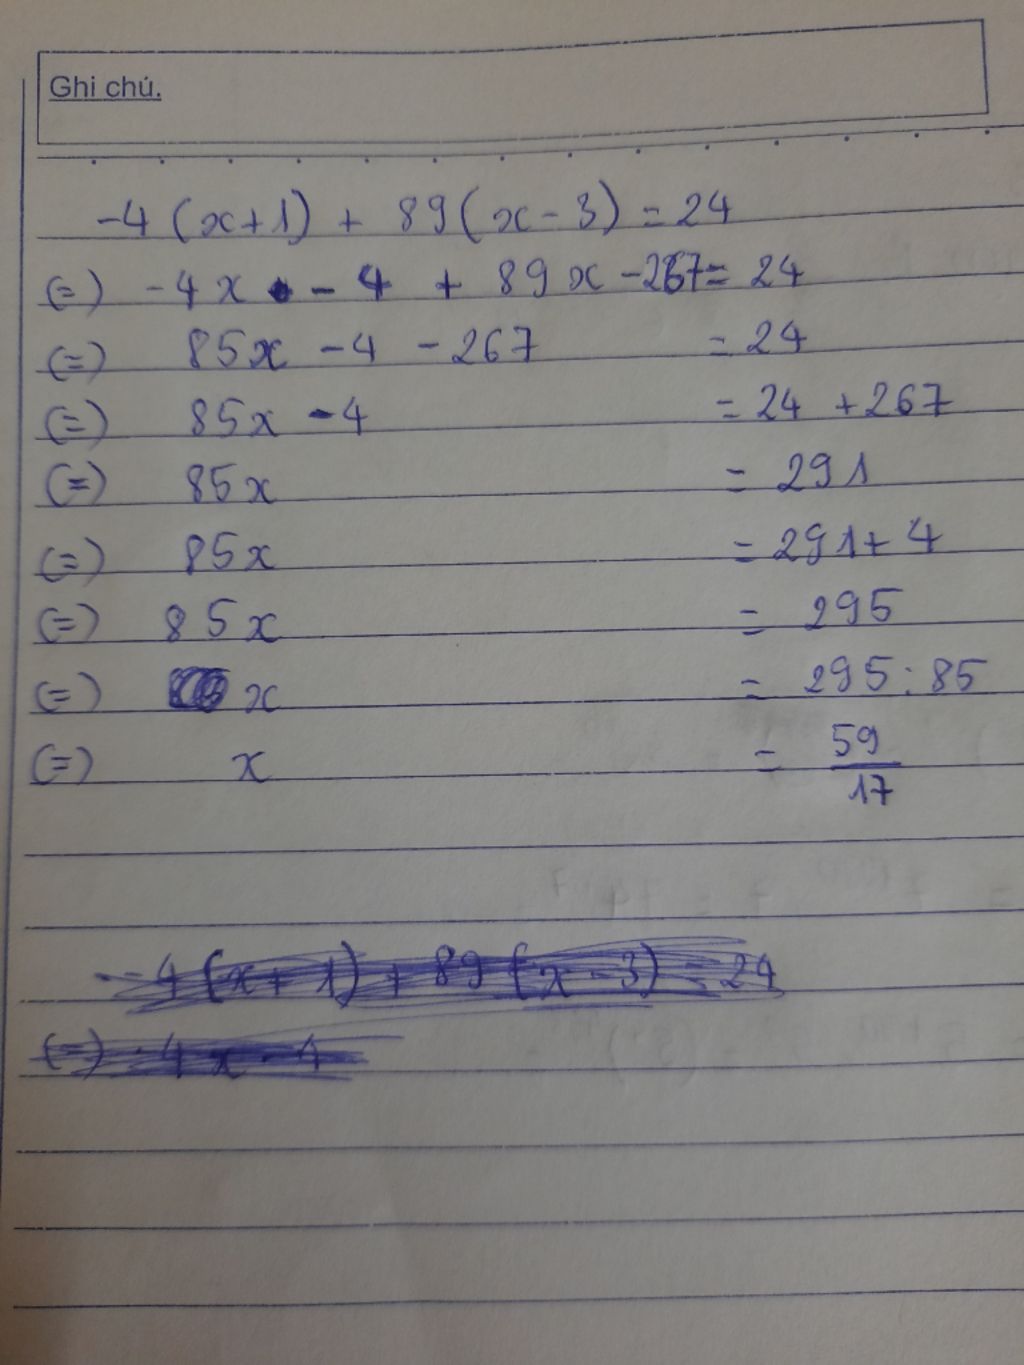 Ghi chú.
-4(x+1) + 89(x-3) = 24
(=) -4x - 4 + 89x -267= 24
(=) 85x -4 -267 = 24
(=) 85x -4 = 24 +267
(=) 85x = 291
(=) 85x = 291+ 4
(=) 85x = 295
(=) x = 295:85
(=) x = 59/17
-4(x+1)+89(x-3)=24
(=) -4x-4